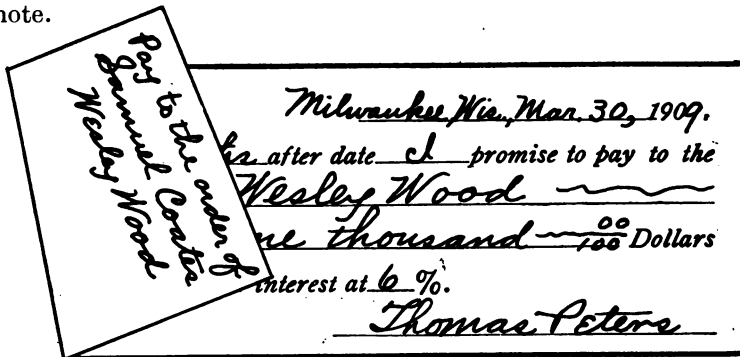 note.
Pay to the order of
Samuel Coates
Wesley Wood
Milwaukee, Wis., Mar. 30, 1909.
after date I promise to pay to the
Wesley Wood
thousand 00/100 Dollars
interest at 6 %.
Thomas Peters